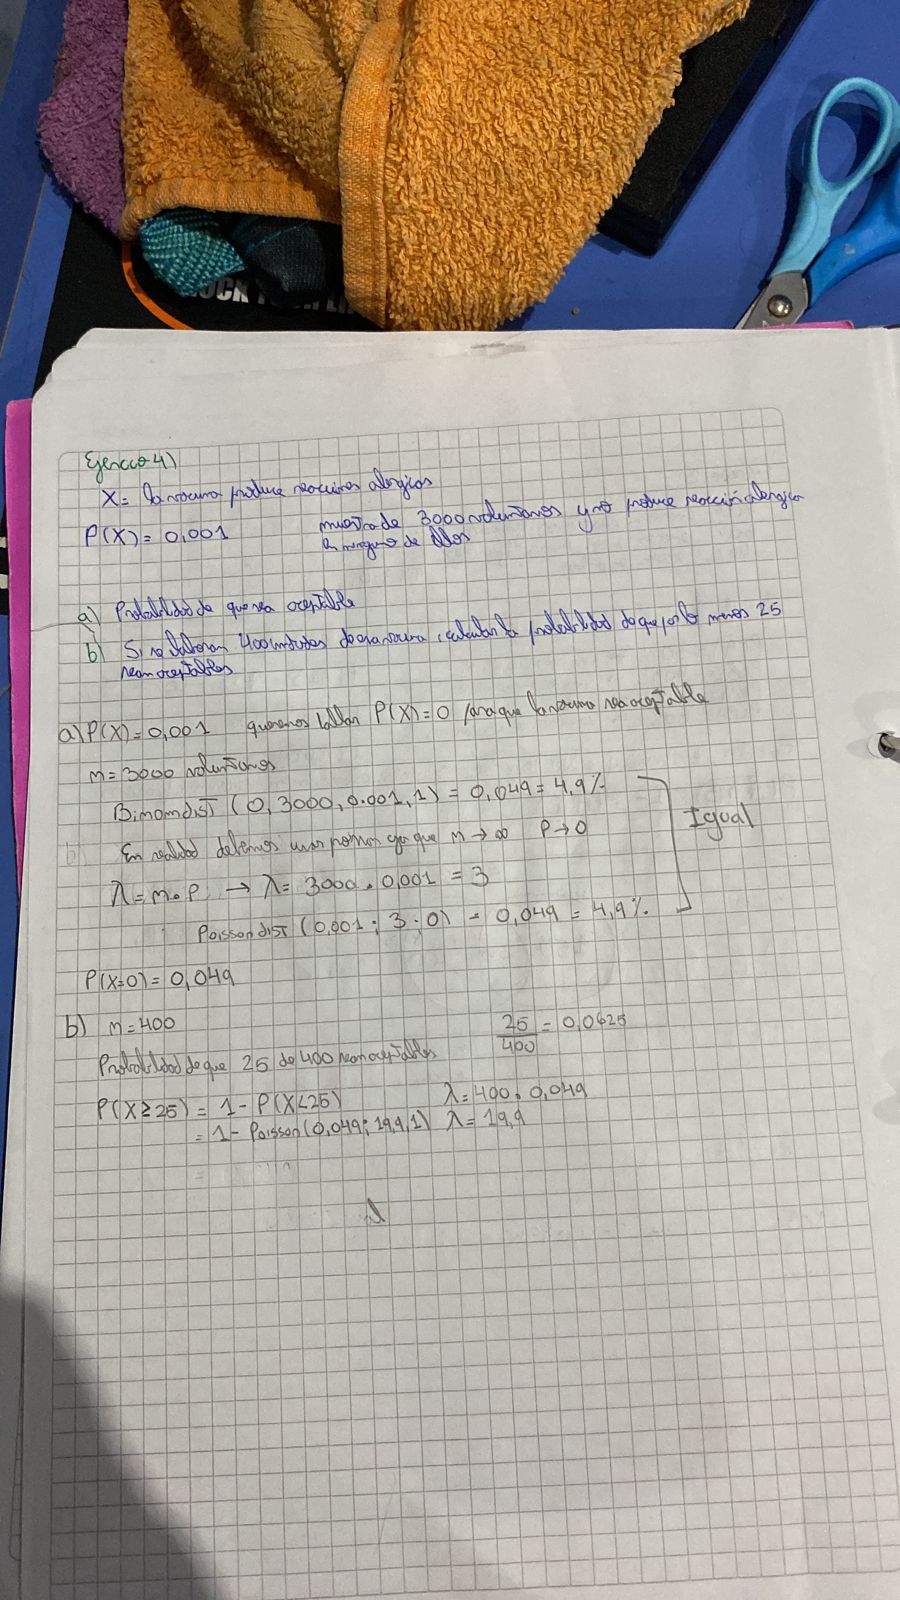 Ejercicio 4)
X = la vacuna produce reacciones alergicas
P(X) = 0,001
muestra de 3000 voluntarios y no produce reacción alergica
en ninguno de ellos
a) Probabilidad de que sea aceptable
b) Si se elaboran 400 unidades de esa vacuna, calcular la probabilidad de que por lo menos 25
sean aceptables
a) P(X) = 0,001 queremos hallar P(X) = 0 para que la vacuna sea aceptable
n = 3000 voluntarios
Binomdist (0, 3000, 0.001, 1) = 0,049 = 4,9%
En realidad debemos usar poisson ya que n → ∞ P → 0
Igual
λ = n.P. → λ = 3000 . 0,001 = 3
Poisson dist (0,001 ; 3 ; 0) = 0,049 = 4,9%.
P(X=0) = 0,049
b) n = 400
25/400 = 0,0625
Probabilidad de que 25 de 400 sean aceptables
P(X ≥ 25) = 1 - P(X < 25) λ = 400 . 0,049
= 1 - Poisson (0,049; 19,9, 1) λ = 19,9